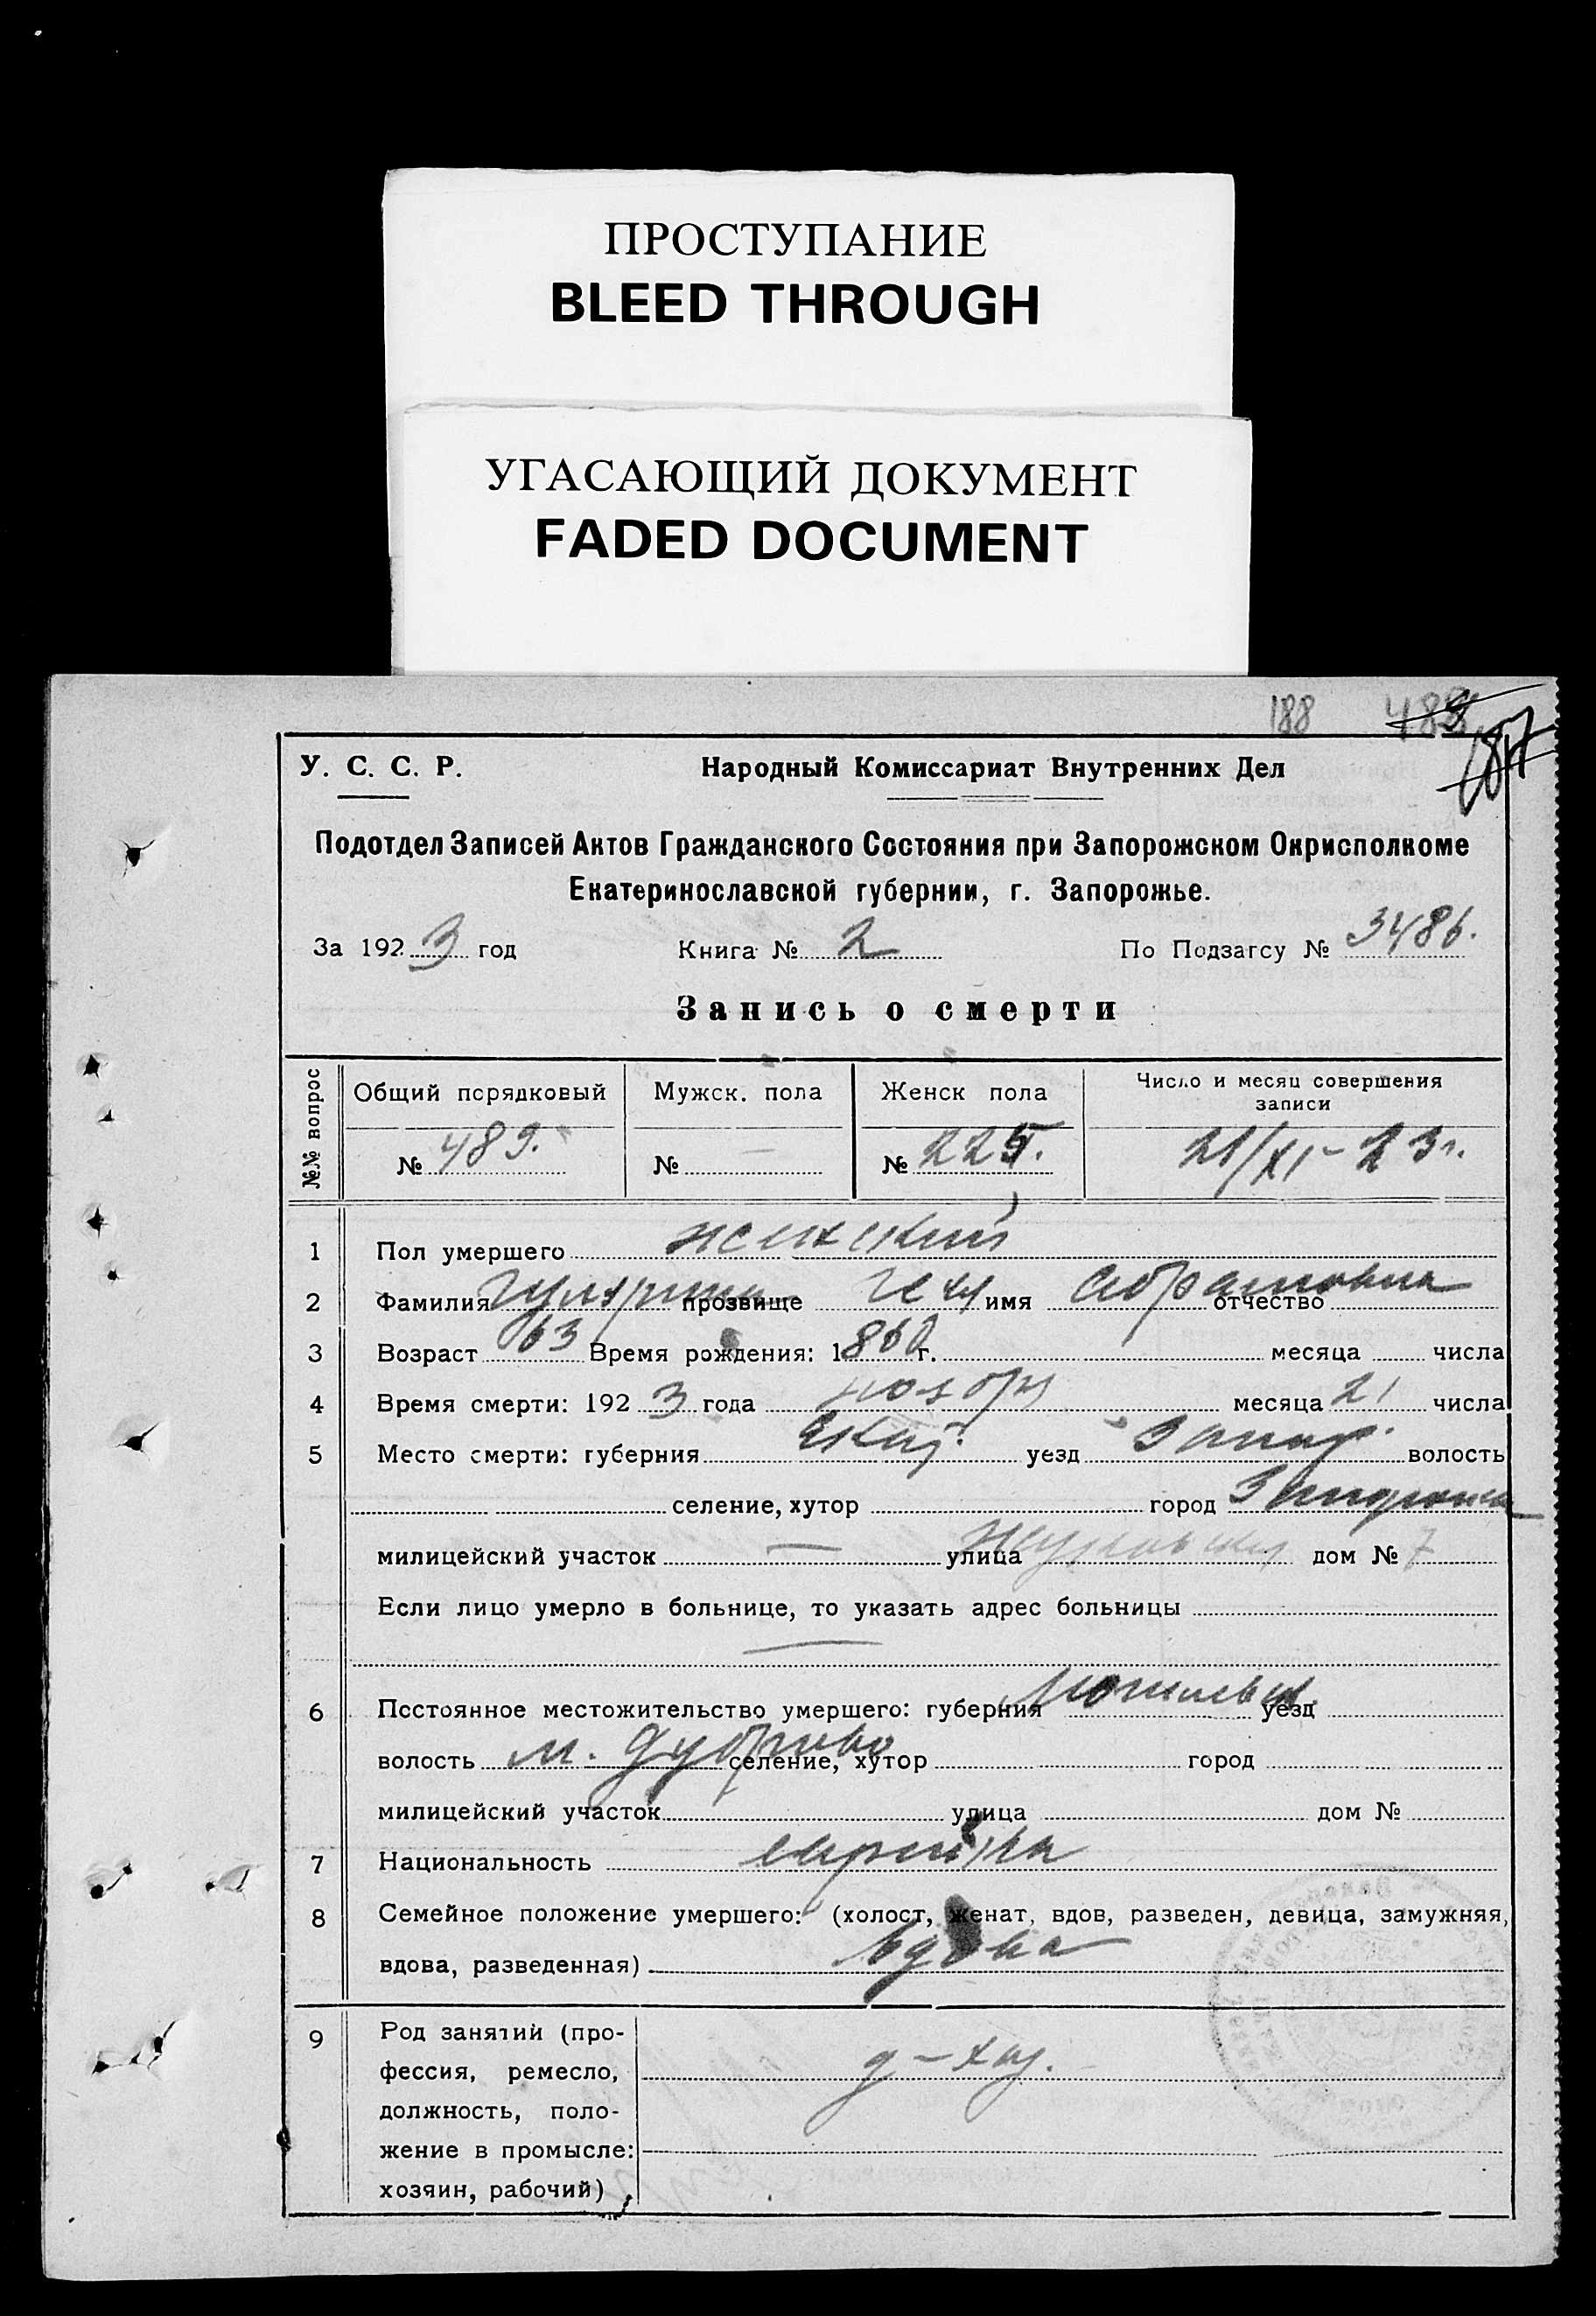 ПРОСТУПАНИЕ
BLEED THROUGH
УГАСАЮЩИЙ ДОКУМЕНТ
FADED DOCUMENT
188 489 187
У. С. С. Р. Народный Комиссариат Внутренних Дел
Подотдел Записей Актов Гражданского Состояния при Запорожском Окрисполкоме
Екатеринославской губернии, г. Запорожье.
За 1923 год Книга № 2 По Подзагсу № 3486.
Запись о смерти
№№ вопрос Общий порядковый Мужск. пола Женск пола Число и месяц совершения
записи
№ 489. № — № 225. 21/XI-23г.
1 Пол умершего женский
2 Фамилия прозвище имя Абрамовна отчество
3 Возраст 63 Время рождения: 1860 г. месяца числа
4 Время смерти: 1923 года ноября месяца 21 числа
5 Место смерти: губерния Екат. уезд Запор. волость
селение, хутор город Запорожье
милицейский участок — улица дом № 7
Если лицо умерло в больнице, то указать адрес больницы
—
6 Постоянное местожительство умершего: губерния уезд
волость м. Дубровно селение, хутор город
милицейский участок улица дом №
7 Национальность еврейка
8 Семейное положение умершего: (холост, женат, вдов, разведен, девица, замужняя,
вдова, разведенная) вдова
9 Род занятий (про-
фессия, ремесло, д-хоз.
должность, поло-
жение в промысле:
хозяин, рабочий)